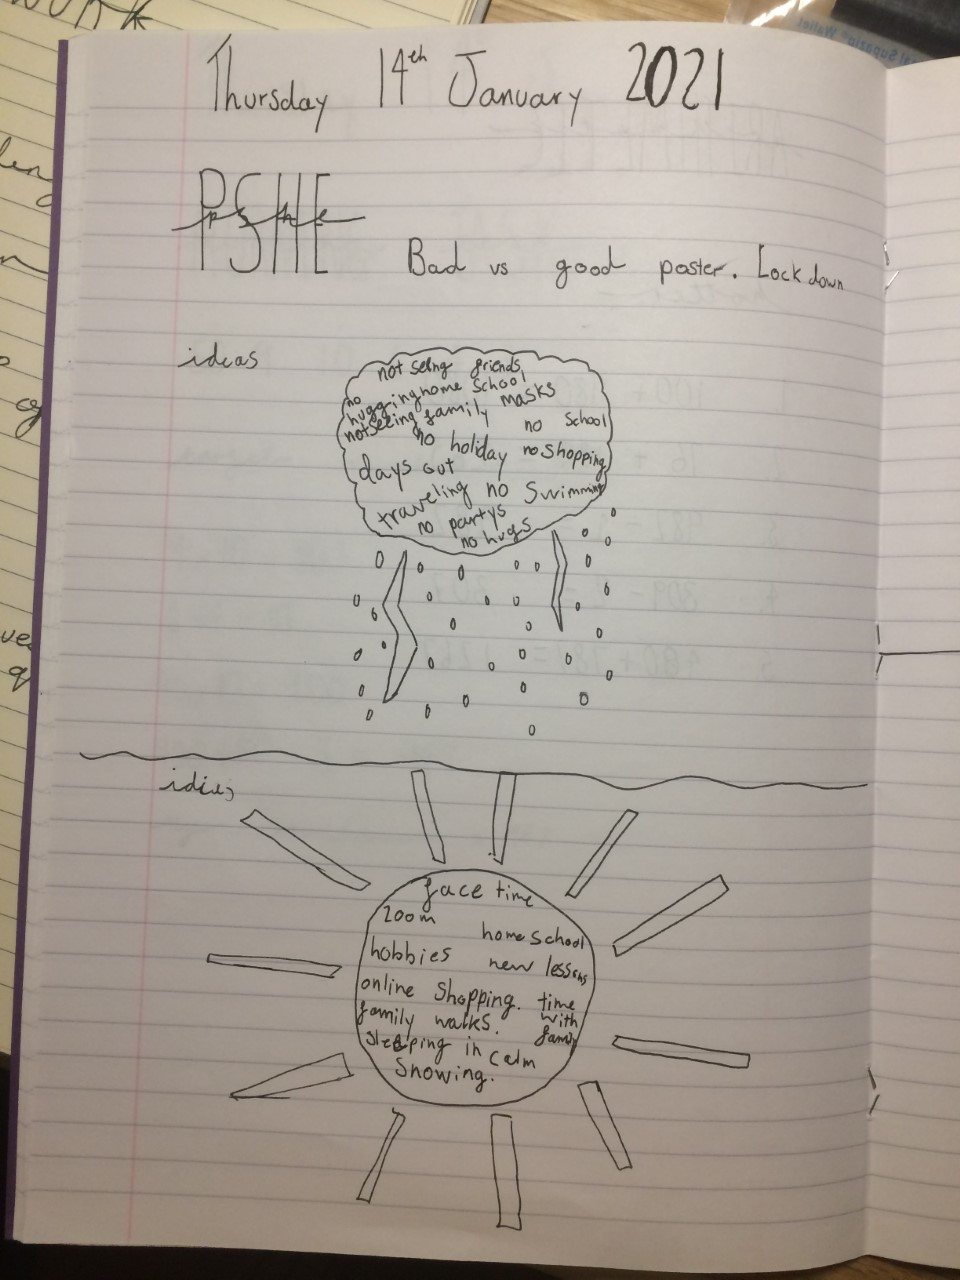 Thursday 14th January 2021
PSHE
Bad vs good poster. Lockdown
ideas
not seing friends
no hugging home School
not seeing family masks
no School
no holiday no shopping
days out
traveling no Swimming
no partys
no hugs
face time
zoom home school
hobbies new lessons
online shopping. time with family
family walks.
sleeping in calm
Snowing.